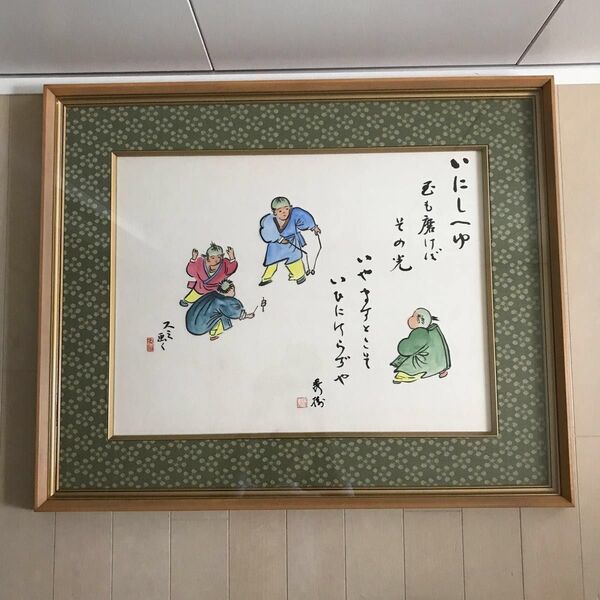 いにしへゆ
玉も磨けば
その光
いやますとこそ
いひにけらずや
秀樹
スミ画く